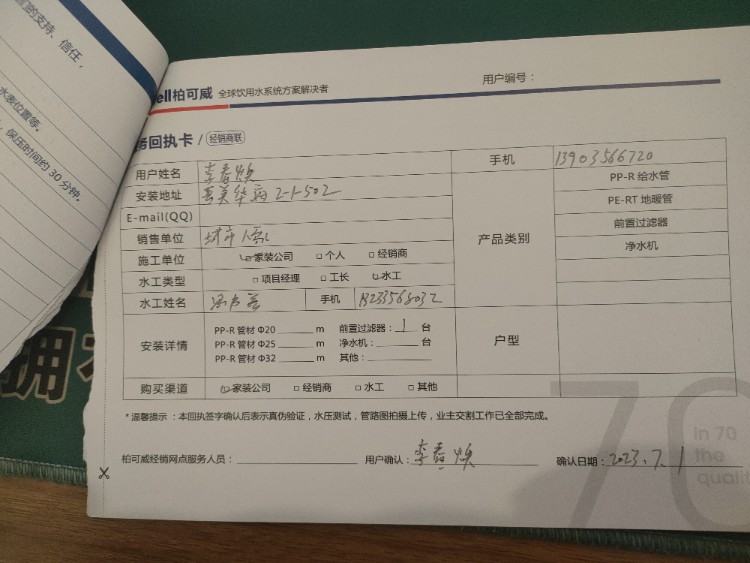 的支持、信任，
水表位置等。
，保压时间约 30 分钟。
拥
ell柏可威 全球饮用水系统方案解决者
用户编号：
务回执卡 / 经销商联
用户姓名 李春焕 手机 13903566720
安装地址 2-1-502 PP-R 给水管
E-mail(QQ) PE-RT 地暖管
销售单位 城市人家 产品类别 前置过滤器
施工单位 ☑家装公司 □个人 □经销商 净水机
水工类型 □项目经理 □工长 ☑水工
水工姓名 手机 13233568032
安装详情 PP-R 管材 Φ20 ______ m 前置过滤器：1 台 户型
PP-R 管材 Φ25 ______ m 净水机：______ 台
PP-R 管材 Φ32 ______ m 其他：______
购买渠道 ☑家装公司 □经销商 □水工 □其他
*温馨提示：本回执签字确认后表示真伪验证，水压测试，管路图拍摄上传，业主交割工作已全部完成。
70
In 70
the
qualit
柏可威经销网点服务人员：______ 用户确认：李春焕 确认日期：2023.7.1